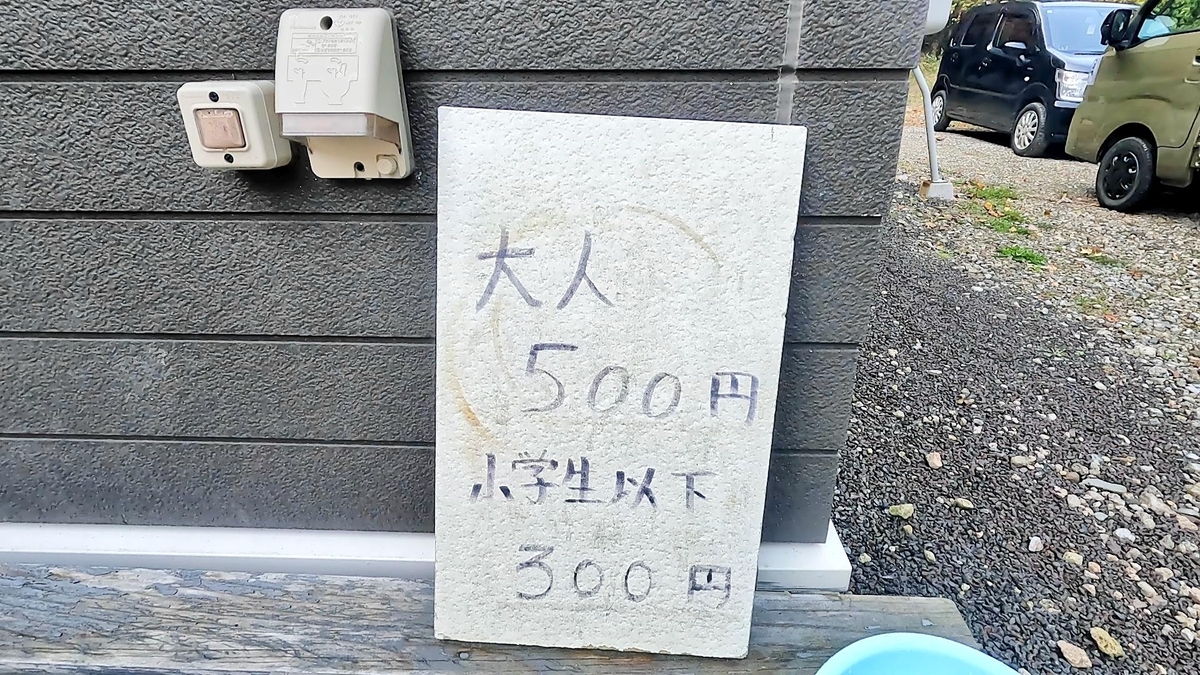 大人
500円
小学生以下
300円